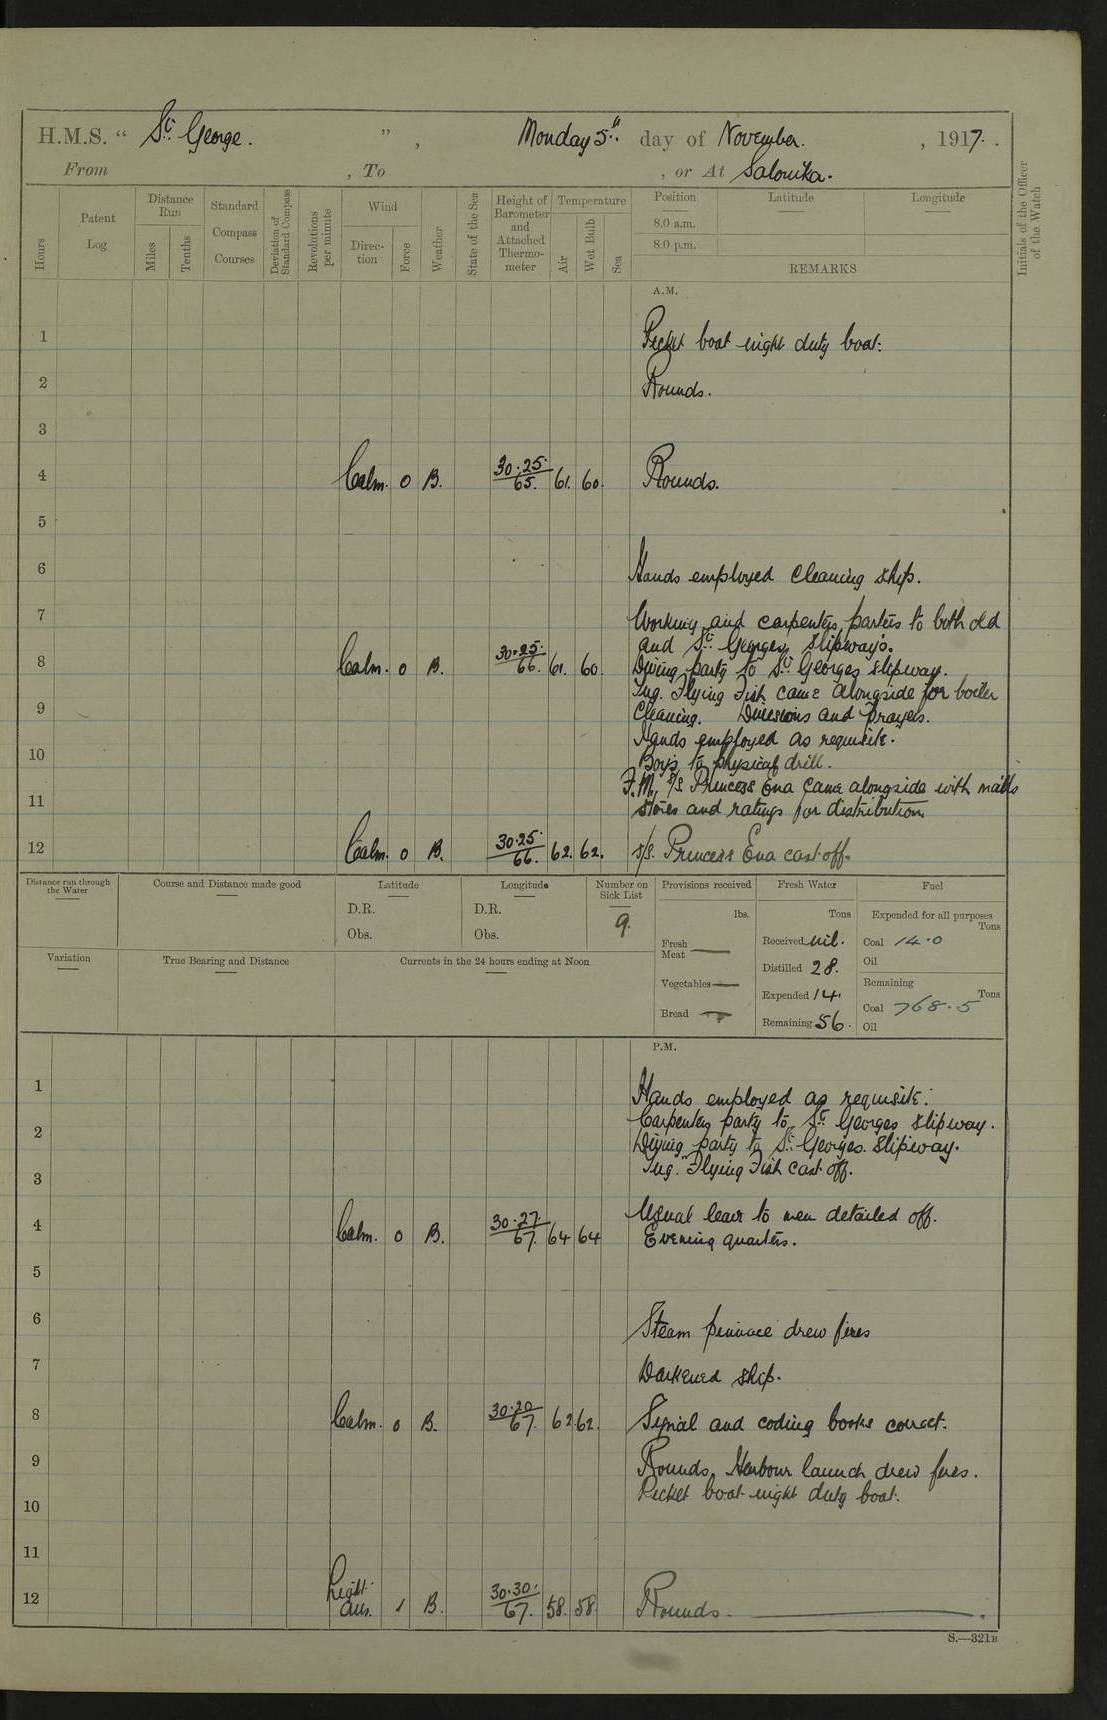 H.M.S. "St George." , Monday 5th day of November. , 1917.
From , To , or At Salonika.
Hours
Patent Log
Distance Run
Miles
Tenths
Standard Compass Courses
Deviation of Standard Compass
Revolutions per minute
Wind
Direction
Force
Weather
State of the Sea
Height of Barometer and Attached Thermometer
Temperature
Air
Wet Bulb
Sea
Position
8.0 a.m.
8.0 p.m.
Latitude
Longitude
REMARKS
Initials of the Officer of the Watch
A.M.
1 Picket boat night duty boat.
2 Rounds.
3
4 Calm. 0 B. 30.25 65. 61. 60. Rounds.
5
6 Hands employed Cleaning ship.
7 Working and carpenters parties to both old
and St Georges slipways.
8 Calm. 0 B. 30.25 66. 61. 60. Diving party to St Georges slipway.
Tug. Flying Fish came alongside for boiler
9 Cleaning. Divisions and Prayers.
Hands employed as requisite.
10 Boys to physical drill.
F.M. s/s Princess Ena came alongside with mails
11 Stores and ratings for distribution
12 Calm. 0 B. 30.25 66. 62. 62. s/s. Princess Ena cast off.
Distance run through the Water
Course and Distance made good
Latitude
D.R.
Obs.
Longitude
D.R.
Obs.
Number on Sick List
9.
Provisions received
lbs.
Fresh Meat —
Vegetables —
Bread —
Fresh Water
Tons
Received nil.
Distilled 28.
Expended 14.
Remaining 56.
Fuel
Expended for all purposes
Tons
Coal 14.0
Oil
Remaining
Tons
Coal 768.5
Oil
Variation
True Bearing and Distance
Currents in the 24 hours ending at Noon
P.M.
1 Hands employed as requisite.
Carpenters party to St Georges slipway.
2 Diving party to St Georges. Slipway.
3 Tug. "Flying Fish cast off.
4 Calm. 0 B. 30.27. 67. 64 64 Usual leave to men detailed off.
Evening quarters.
5
6 Steam pinnace drew fires
7 Darkened ship.
8 Calm. 0 B. 30.20 67. 62. 62. Signal and coding books correct.
9 Rounds. Harbour launch drew fires.
10 Picket boat night duty boat.
11
12 Light airs. 1 B. 30.30. 67. 58. 58. Rounds.
S.—321B